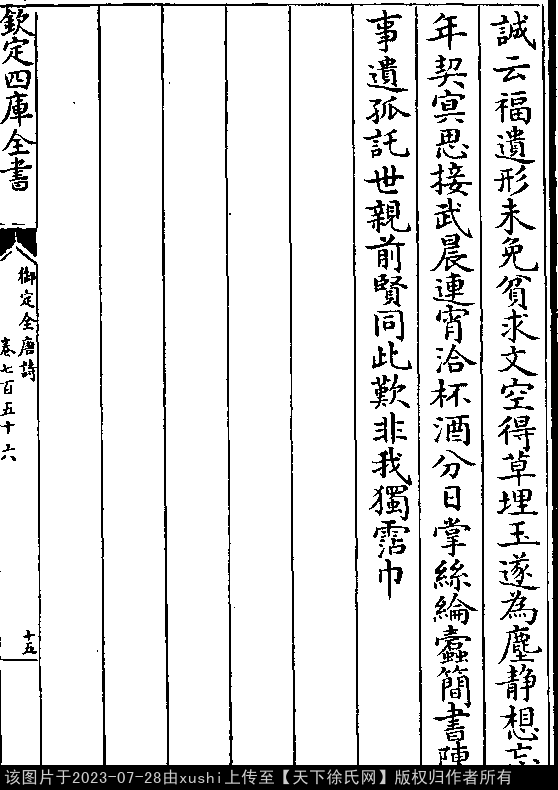 誠云福遺形未免貧求文空得草埋玉遂為塵静想忘
年契冥思接武晨連宵洽杯酒分日掌絲綸蠹簡書陳
事遺孤託世親前賢同此歎非我獨霑巾
欽定四庫全書
御定全唐詩
卷七百五十六
十五
该图片于2023-07-28由xushi上传至【天下徐氏网】版权归作者所有